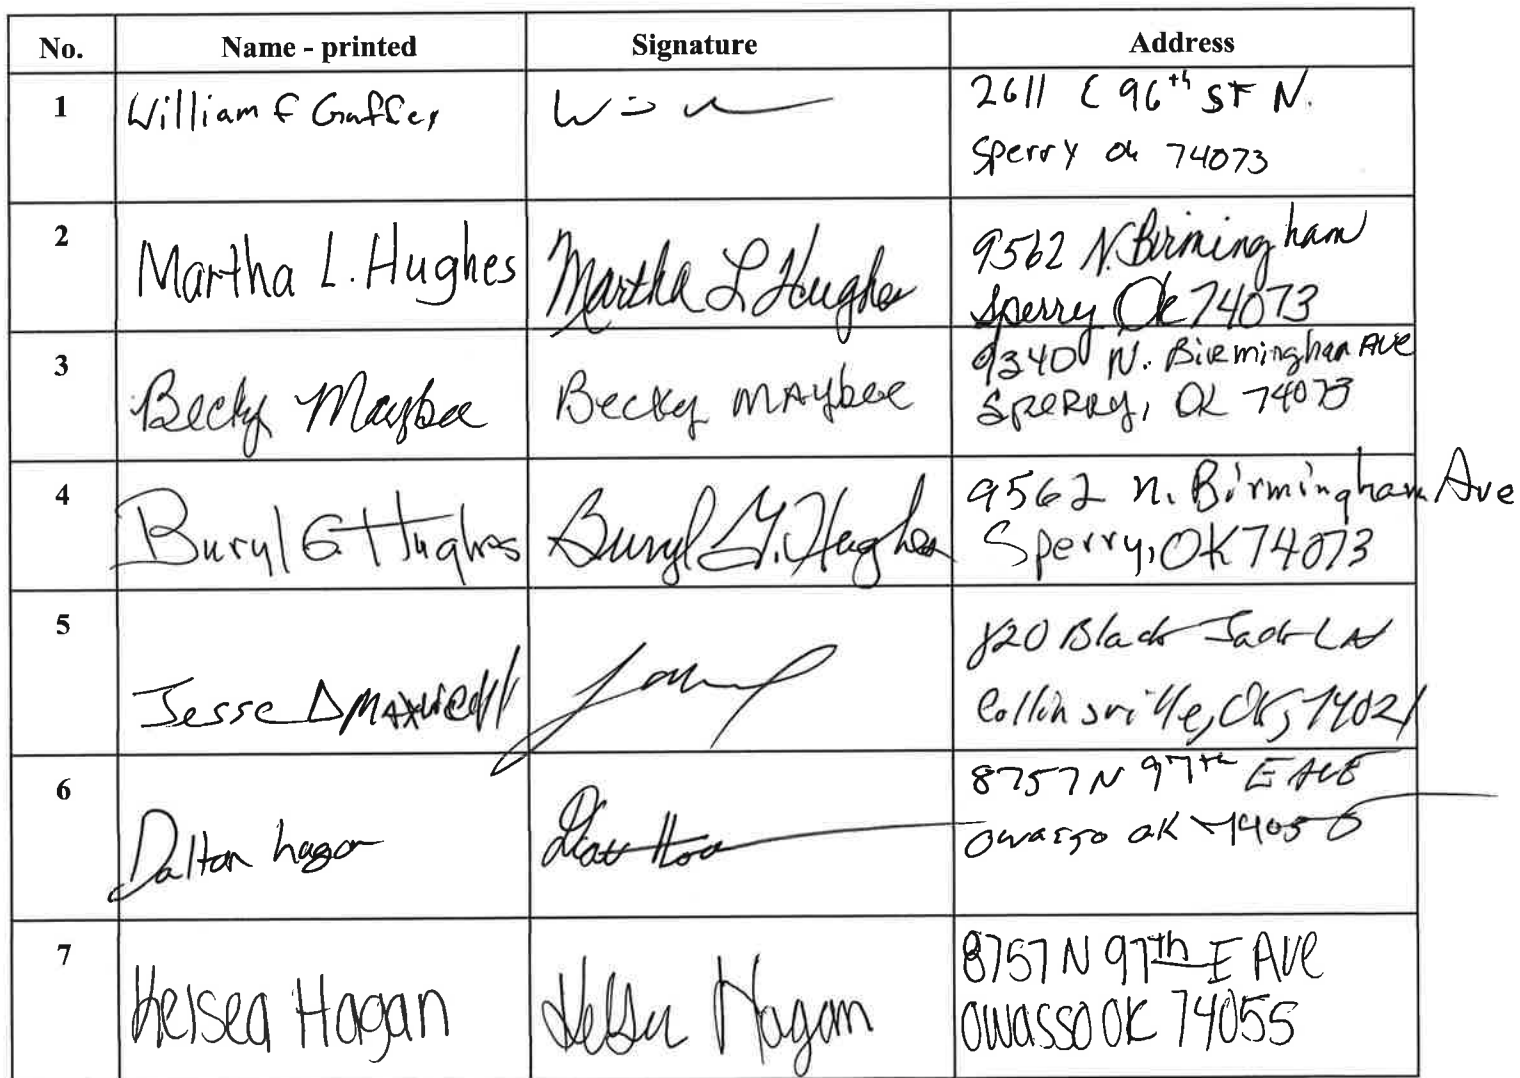 No. Name - printed Signature Address
1 William F Gaffey 2611 E 96th ST N.
Sperry Ok 74073
2 Martha L. Hughes Martha L Hughes 9562 N. Birmingham
Sperry Ok 74073
3 Becky Maybee Becky MAybee 9340 N. Birmingham Ave
SpeRRy, OK 74073
4 Buryl G Hughes Buryl G. Hughes 9562 N. Birmingham Ave
Sperry, OK 74073
5 Jesse D Maxwell 820 Black Jack LN
Collinsville, OK, 74021
6 Dalton hagan 8757 N 97th E AVE
Owasso OK 74055
7 Kelsea Hagan Kelsea Hagan 8757 N 97th E AVE
Owasso OK 74055